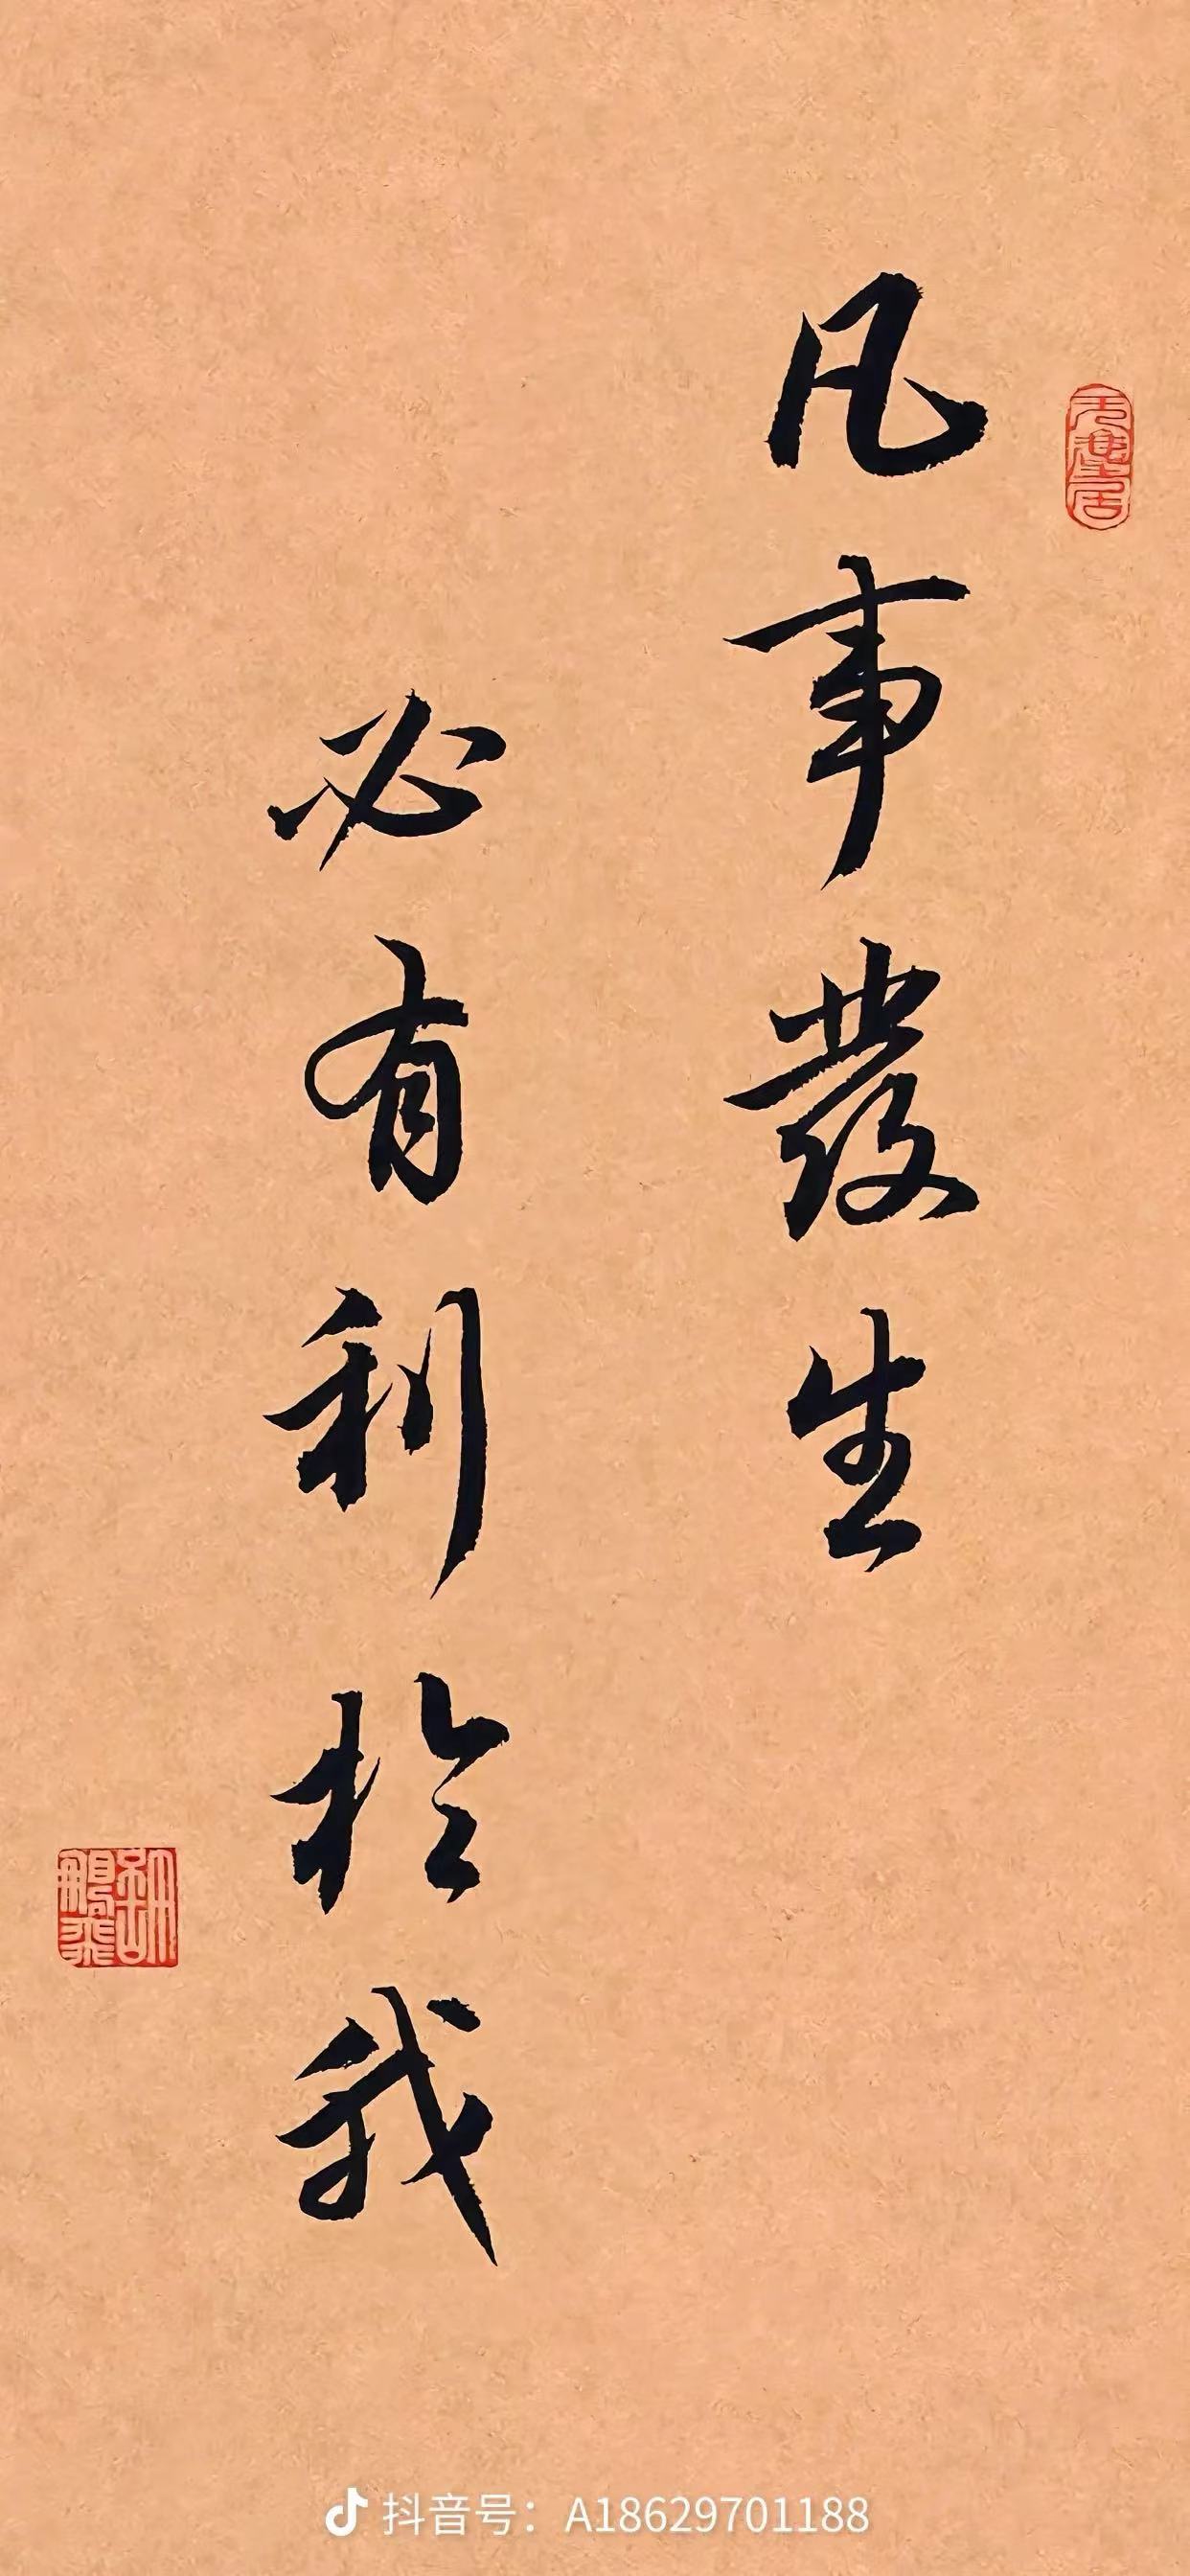 凡事發生
必有利於我
抖音号：A18629701188